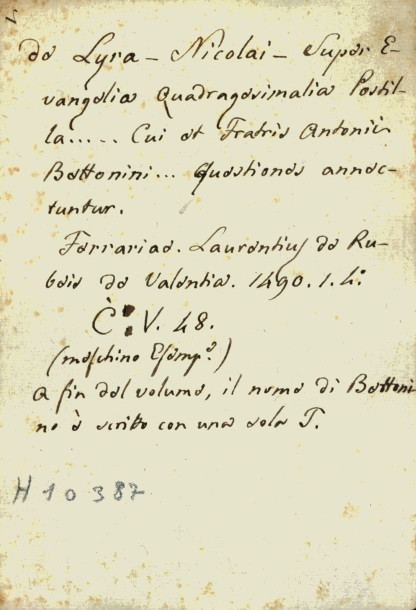 de Lyra – Nicolai – Super E-
vangelia Quadragesimalia Postil-
la..... Cui et Fratris Antonii
Bettonini... Questiones annec-
tuntur.
Ferrariae. Laurentius de Ru-
beis de Valentia. 1490. 1. 4:
È: V. 48.
(meschino Esemp.º)
A fin del volume, il nome di Bettoni-
no è scritto con una sola T.
H 10387